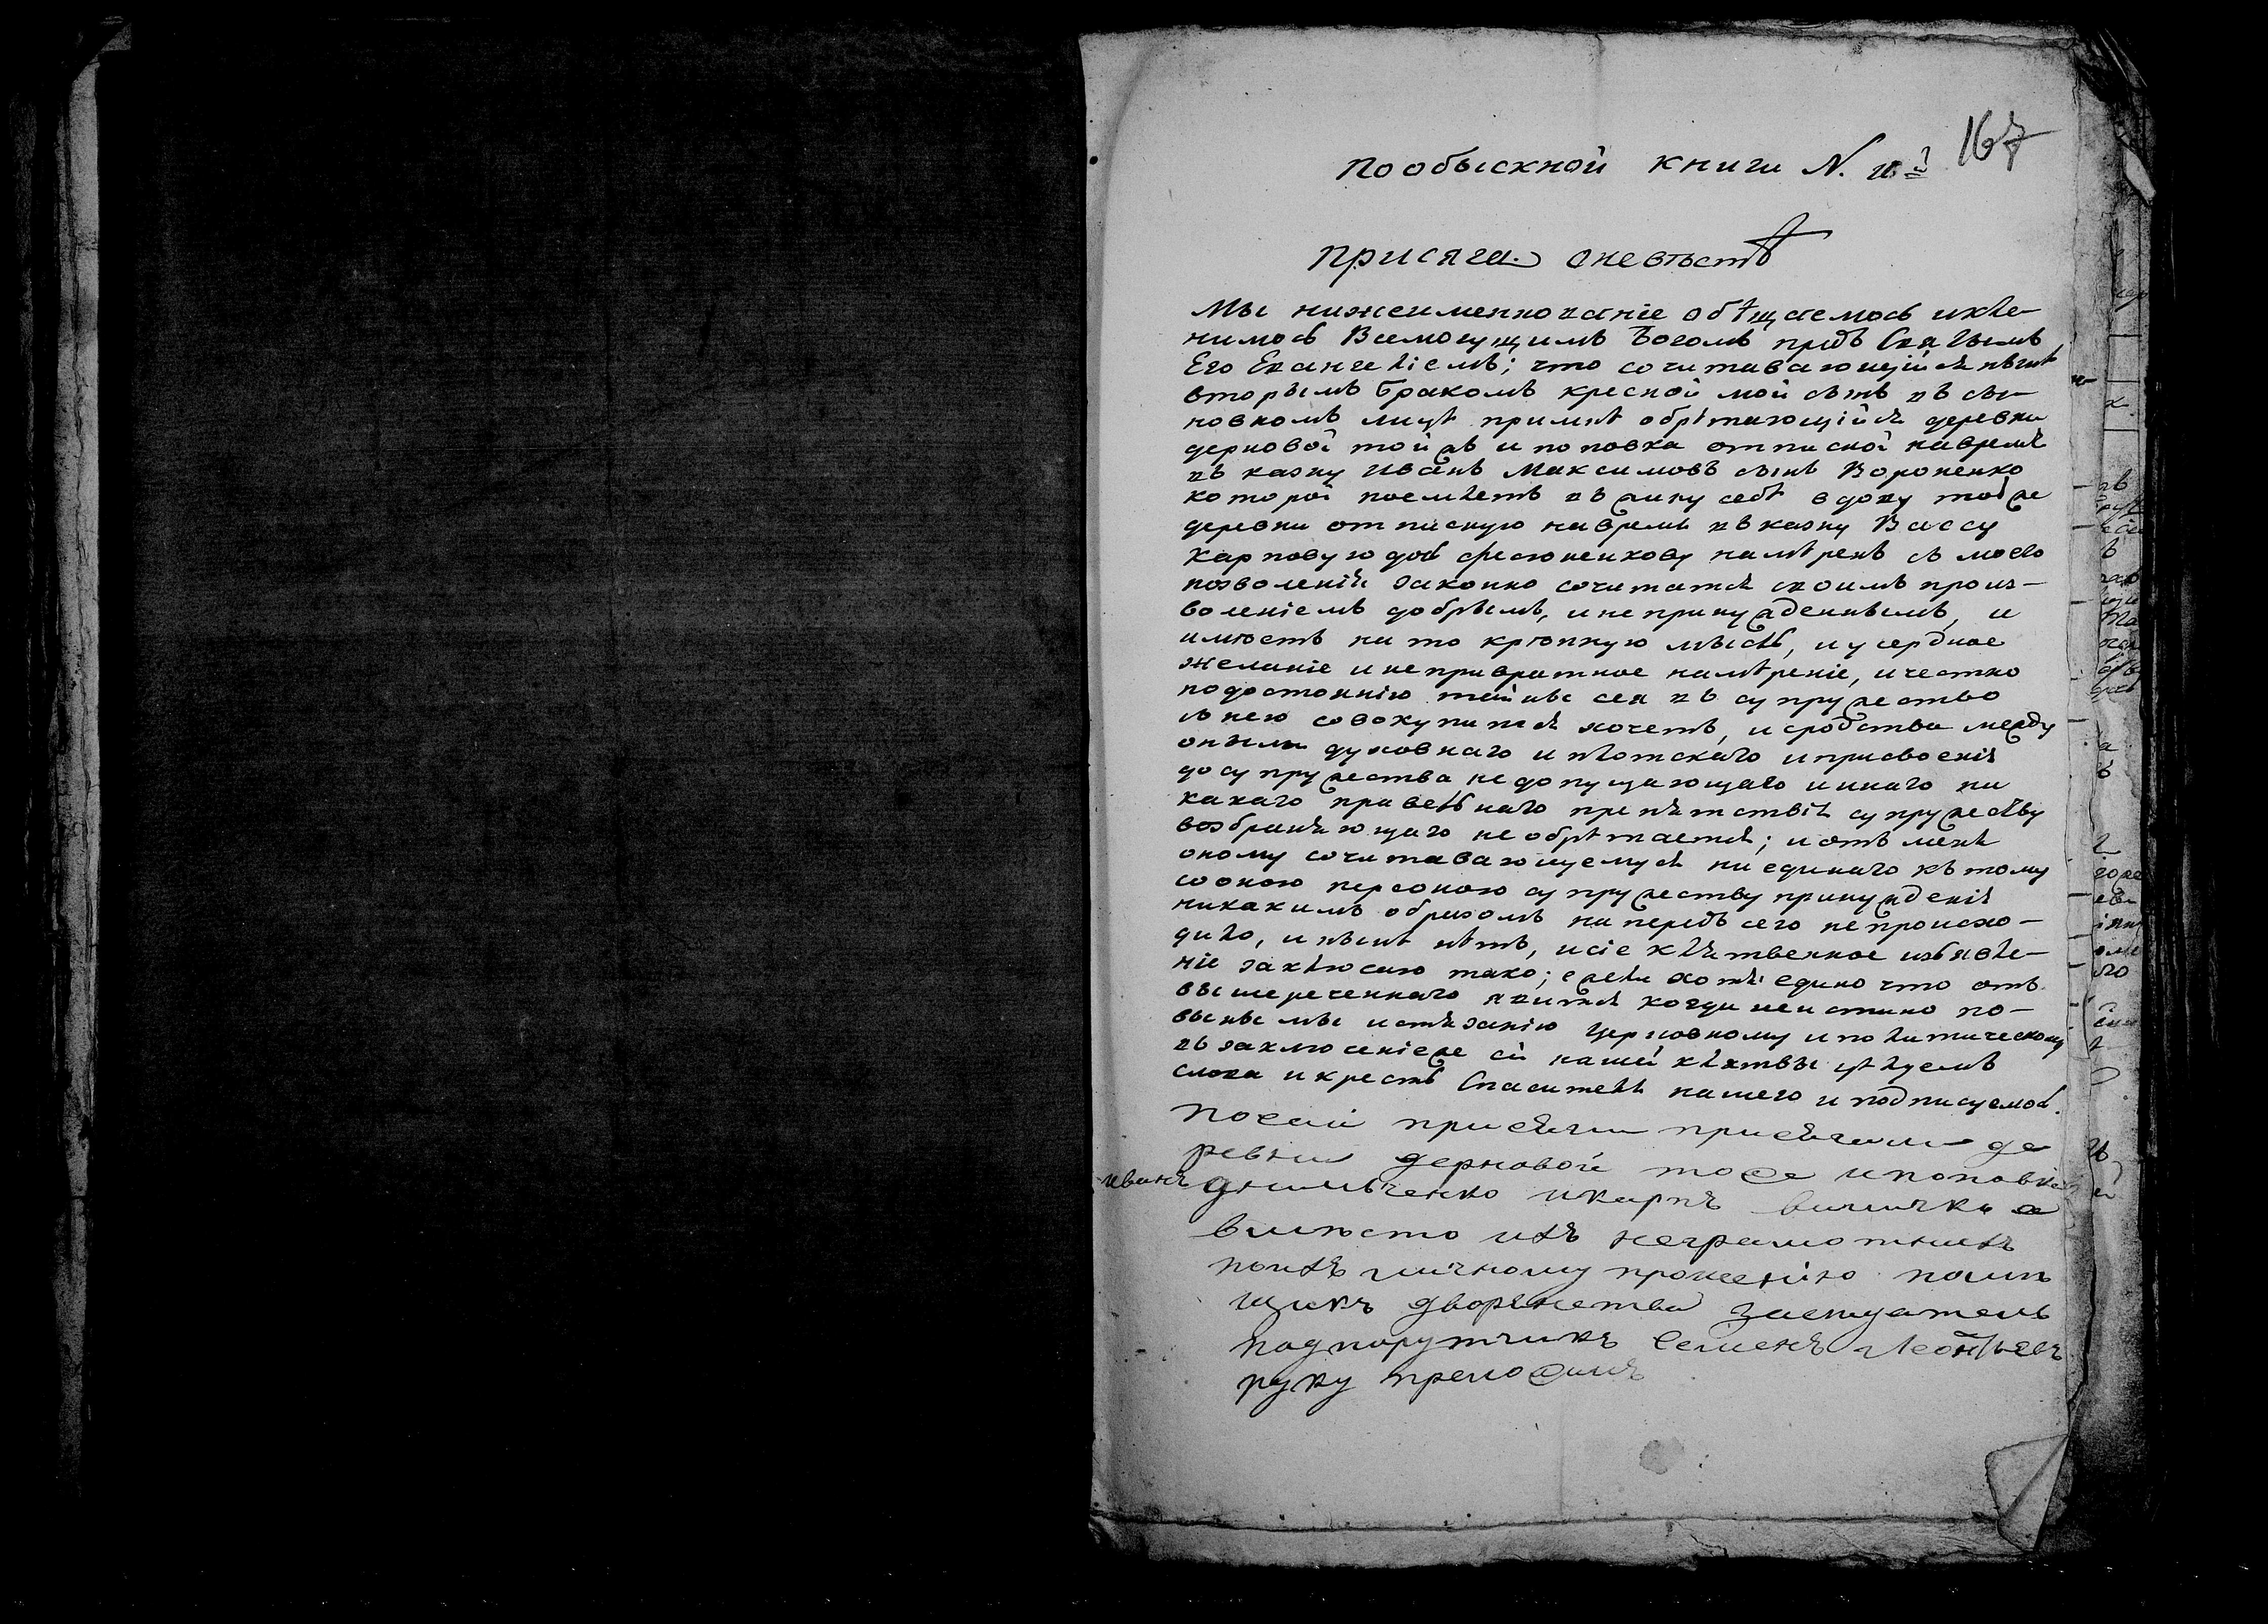 167
по обыскной книги N. и҃й
присяга о невѣстѣ
Мы нижеименнованніе обѣщаемось и кле-
нимось Всемогущимъ Богомъ предъ Святымъ
Его Евангеліемъ; что сочитавающійся нынѣ
вторымъ бракомъ кресной мой сынъ въ сы-
новномъ мѣсте обрѣтающійся деревни
дерновой той жъ и поповка отписной на время
въ казну Иванъ Максимовъ сынъ Вороненко
которой поемлетъ въ жину себѣ вдову той же
деревни отписную на время въ казну Вассу
Карпову дочь Фесюненкову намѣренъ съ моего
позволенія законно сочитатся своимъ произ-
воленіемъ добрымъ, и не принужденнымъ, и
имѣетъ на то крѣпкую мысль, и усердное
желаніе и непривратное намѣреніе, и честно
по достоянію тайны сея въ супружество
съ нею совокупится хочетъ, и сродства между
оными духовнаго и плотскаго и присвоенія
до супружества недопущающаго и инаго ни
какаго правелнаго препятствія супружеству
возбраняющаго не обрѣтается; и отъ мене
оному сочитавающемуся ни единаго къ тому
со оною персоною супружеству принужденія
никакимъ образомъ на передъ сего не происхо-
дило, и нынѣ нѣтъ, и сіе клятвенное изъявле-
ніе заключаю тако; ежели хотя едино что отъ
вышереченнаго явится когда неистино по-
винны мы истязанію церковному и политическому
въ заключеніе же сій нашей клятвы цѣлуемъ
слова и крестъ Спасителя нашего и подписуемось.
По сей присяги присягали де
ревни дерновой то же и поповки
Иванъ Данильченко и карпъ а
вмѣсто ихъ неграмотнихъ
по ихъ личному прошенію помѣ
щикъ дворянства засѣдатель
подпорутчикъ Семенъ Леонтьевъ
руку приложилъ